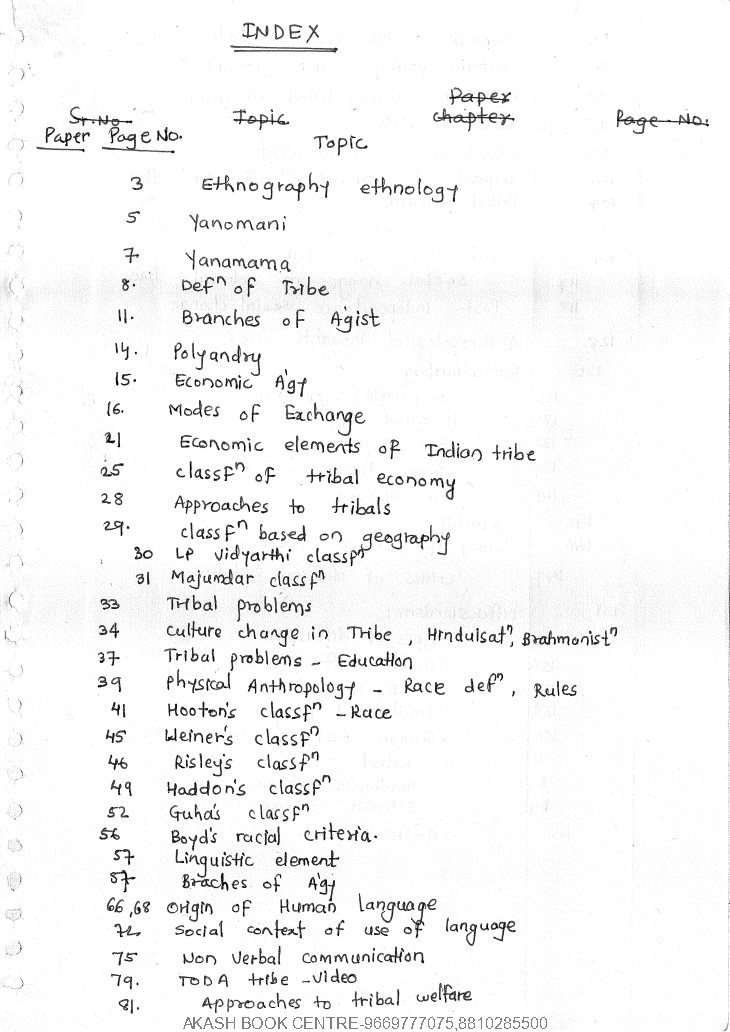 INDEX
Paper
Sr.No. Topic chapter Page No.
Paper Page No. Topic
3 Ethnography ethnology
5 Yanomani
7 Yanamama
8. Defⁿ of Tribe
11. Branches of A'gist
14. Polyandry
15. Economic A'gy
16. Modes of Exchange
21 Economic elements of Indian tribe
25 classfⁿ of tribal economy
28 Approaches to tribals
29. classfⁿ based on geography
30 LP Vidyarthi classfⁿ
31 Majumdar classfⁿ
33 Tribal problems
34 Culture change in Tribe, Hinduisatⁿ, Brahmanistⁿ
37 Tribal problems - Education
39 Physical Anthropology - Race defⁿ, Rules
41 Hooton's classfⁿ - Race
45 Weiner's classfⁿ
46 Risley's classfⁿ
49 Haddon's classfⁿ
52 Guha's classfⁿ
56 Boyd's racial criteria.
57 Linguistic element
57 Braches of A'gy
66,68 Origin of Human Language
72 Social context of use of language
75 Non Verbal communication
79. TODA tribe - Video
81. Approaches to tribal welfare
AKASH BOOK CENTRE-9669777075,8810285500